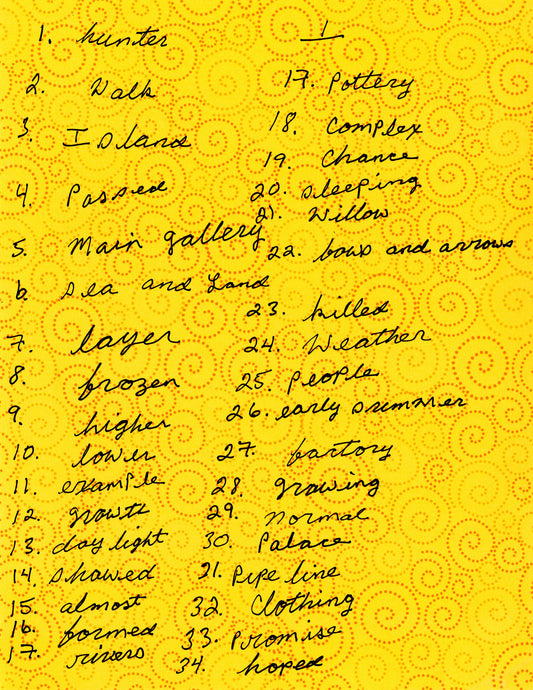 1. hunter
2. Walk
3. Island
4. Passed
5. Main gallery
6. sea and Land
7. layer
8. frozen
9. higher
10. lower
11. example
12. growth
13. day light
14. showed
15. almost
16. formed
17. rivers
1
17. Pottery
18. Complex
19. Chance
20. sleeping
21. Willow
22. bows and arrows
23. killed
24. Weather
25. People
26. early summer
27. factory
28. growing
29. normal
30. Palace
21. Pipe line
32. Clothing
33. Promise
34. hoped